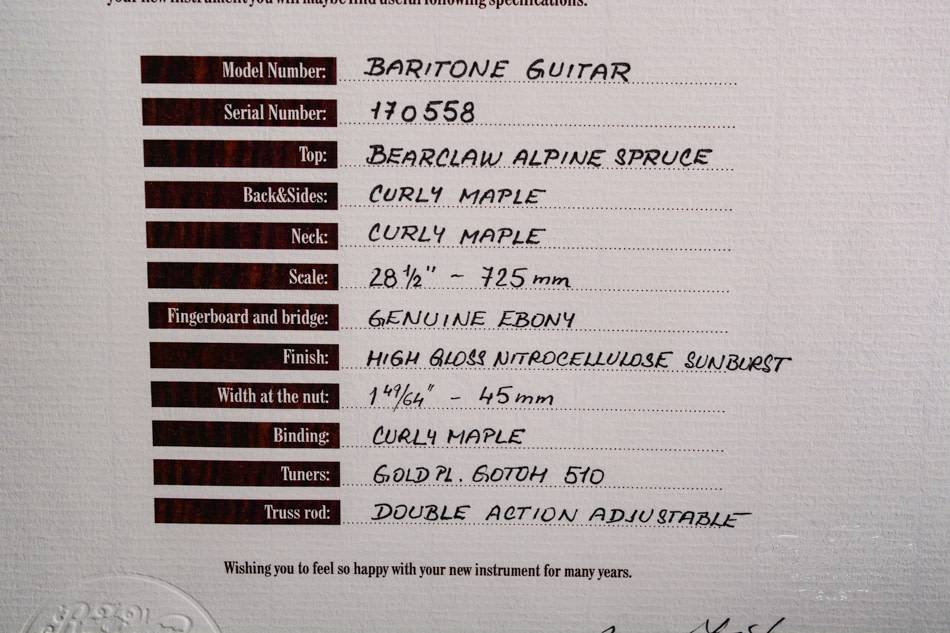 your new instrument you will maybe find useful following specifications.
Model Number: BARITONE GUITAR
Serial Number: 170558
Top: BEARCLAW ALPINE SPRUCE
Back&Sides: CURLY MAPLE
Neck: CURLY MAPLE
Scale: 28 1/2" ~ 725 mm
Fingerboard and bridge: GENUINE EBONY
Finish: HIGH GLOSS NITROCELLULOSE SUNBURST
Width at the nut: 1 49/64" - 45 mm
Binding: CURLY MAPLE
Tuners: GOLD PL. GOTOH 510
Truss rod: DOUBLE ACTION ADJUSTABLE
Wishing you to feel so happy with your new instrument for many years.